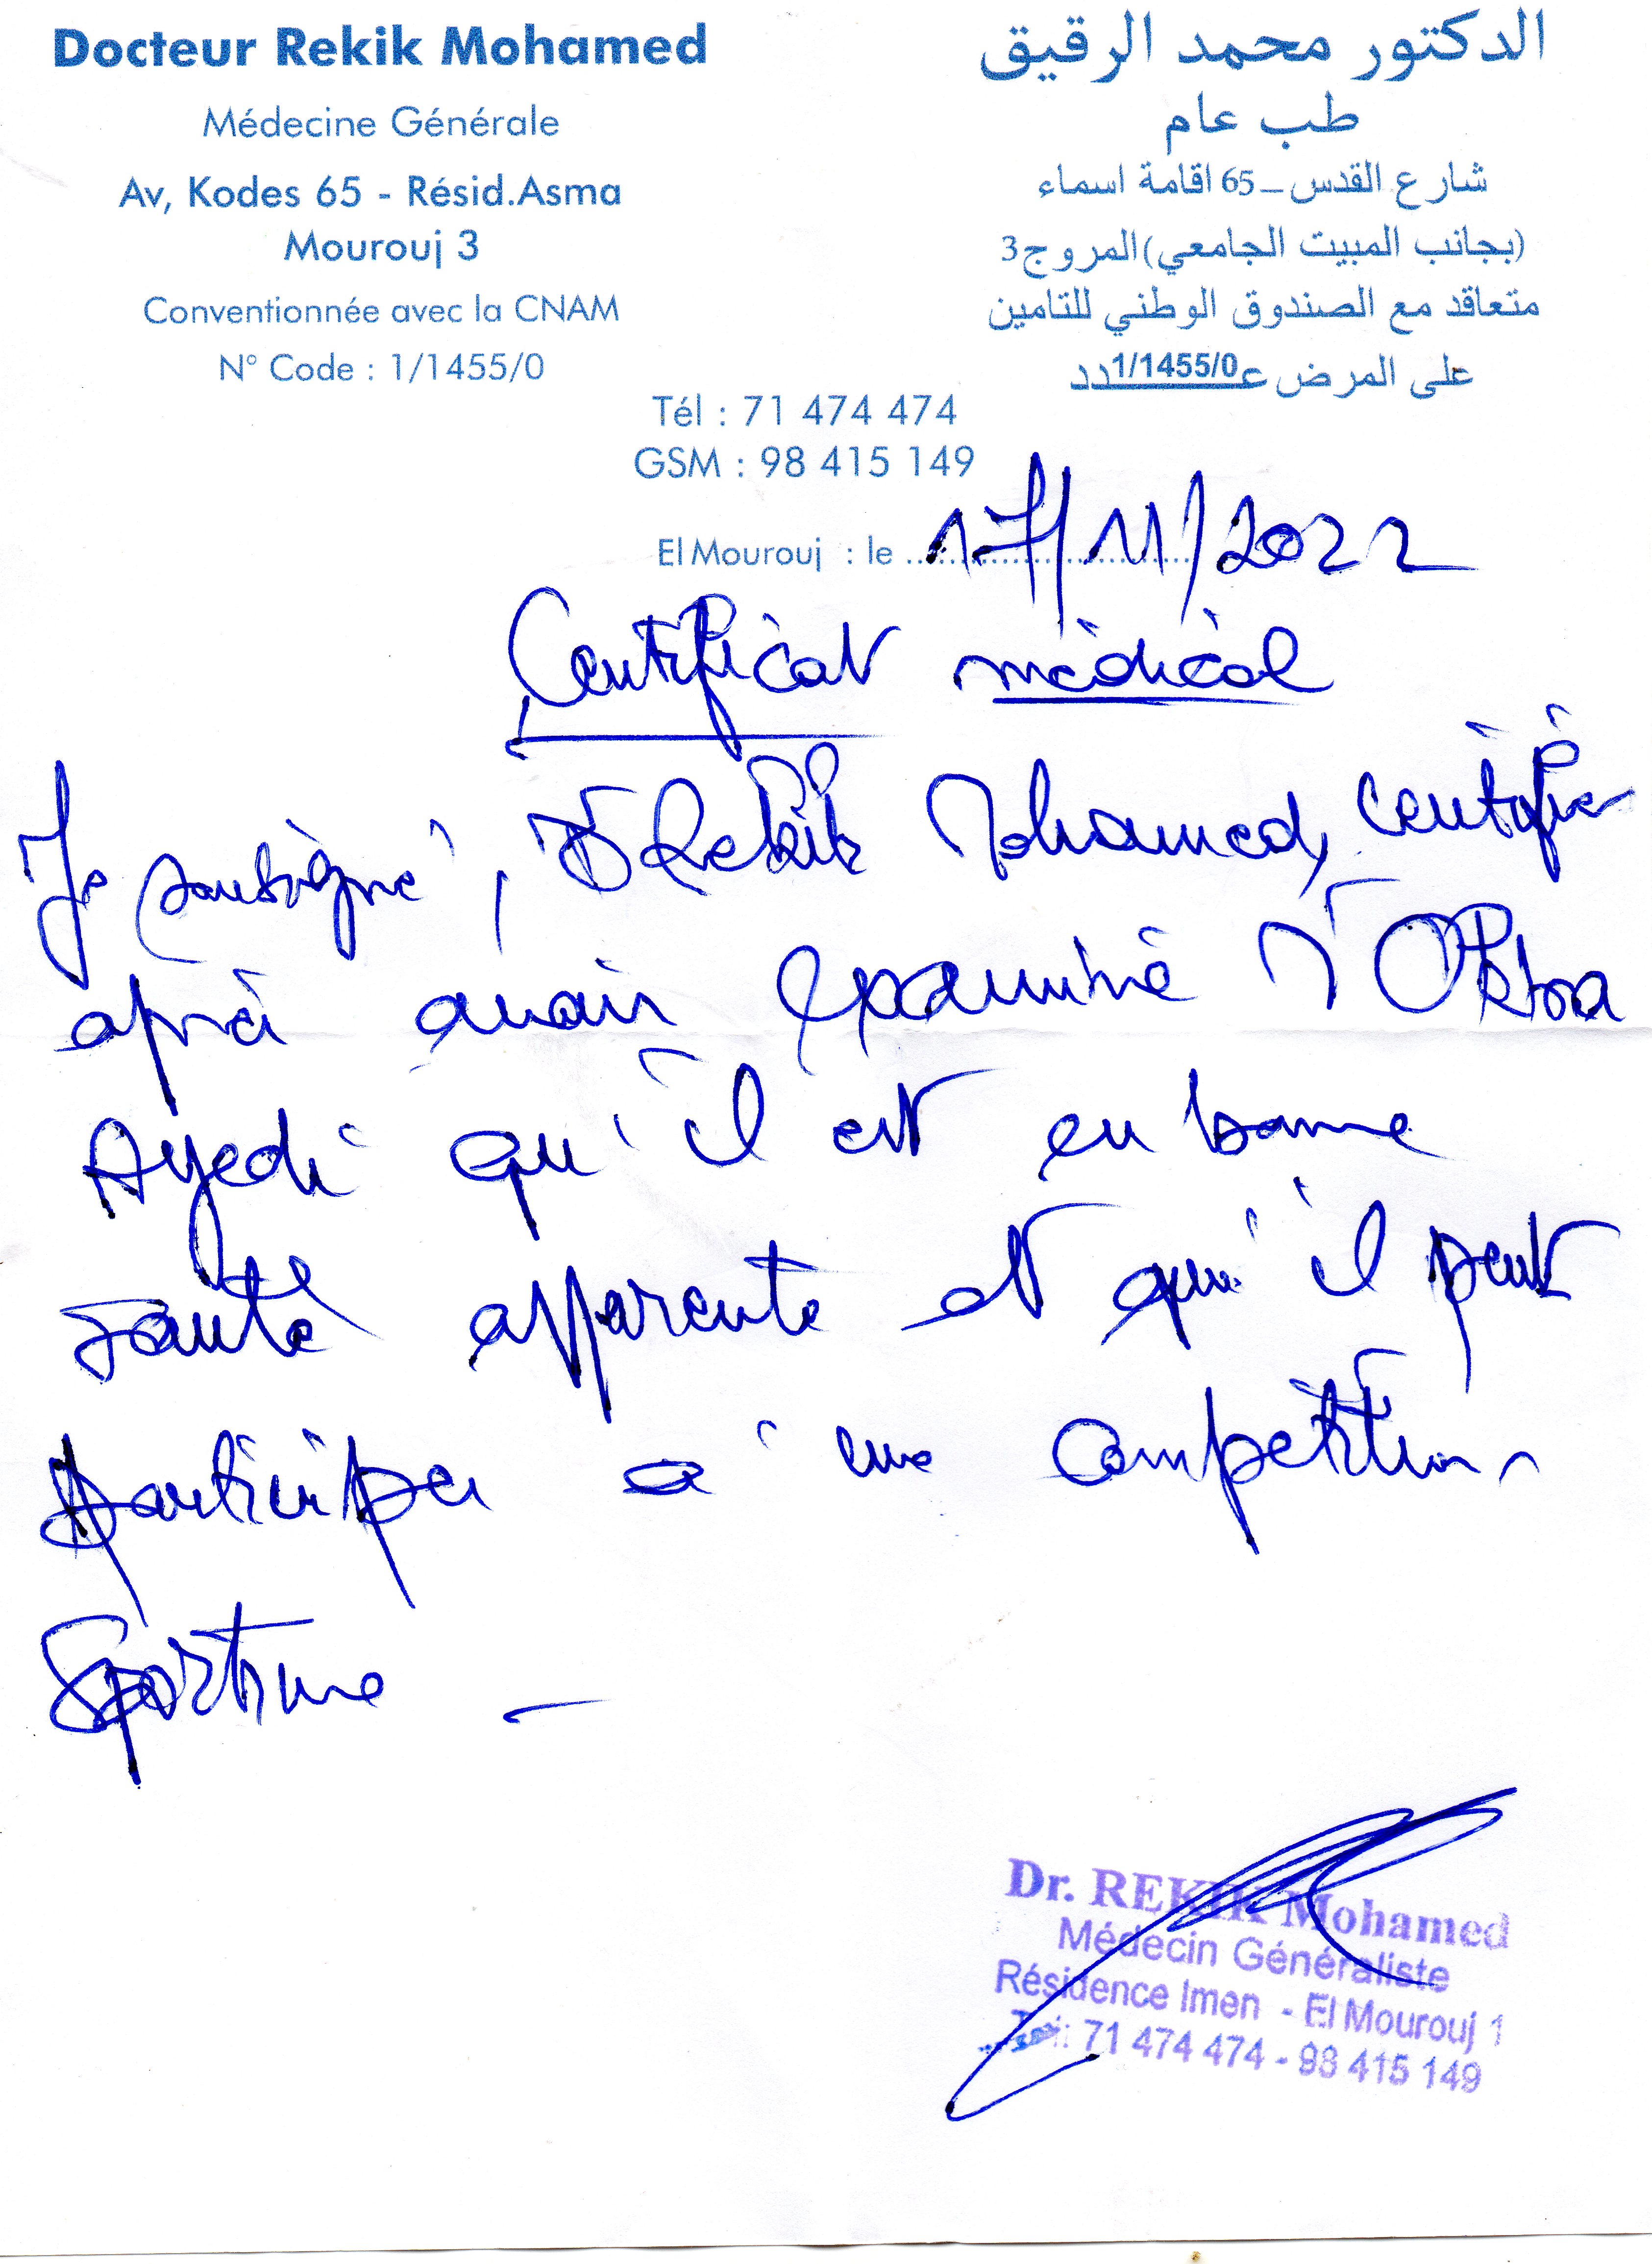 Docteur Rekik Mohamed
Médecine Générale
Av, Kodes 65 - Résid.Asma
Mourouj 3
Conventionnée avec la CNAM
N° Code : 1/1455/0
الدكتور محمد الرقيق
طب عام
شارع القدس – 65 اقامة اسماء
(بجانب المبيت الجامعي) المروج 3
متعاقد مع الصندوق الوطني للتامين
على المرض عـ1/1455/0ـدد
Tél : 71 474 474
GSM : 98 415 149
El Mourouj : le 17/11/2022
Certificat médical
Je soussigné, Dr Rekik Mohamed, certifie
après avoir examiné Mr
Ayedi qu'il est en bonne
santé apparente et qu'il peut
participer à une compétition
Sportive -
Dr. REKIK Mohamed
Médecin Généraliste
Résidence Imen - El Mourouj 1
Tél: 71 474 474 - 98 415 149